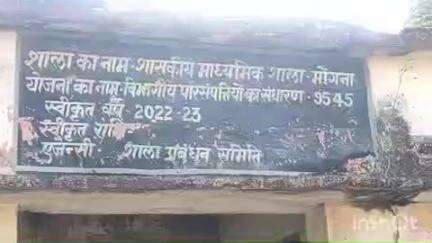 शाला का नाम - शासकीय माध्यमिक शाला - मोंगना
योजना का नाम - विभागीय परिसंपत्तियों का संधारण - 9545
स्वीकृत वर्ष - 2022-23
स्वीकृत राशि
एजन्सी - शाला प्रबंधन समिति
InShot